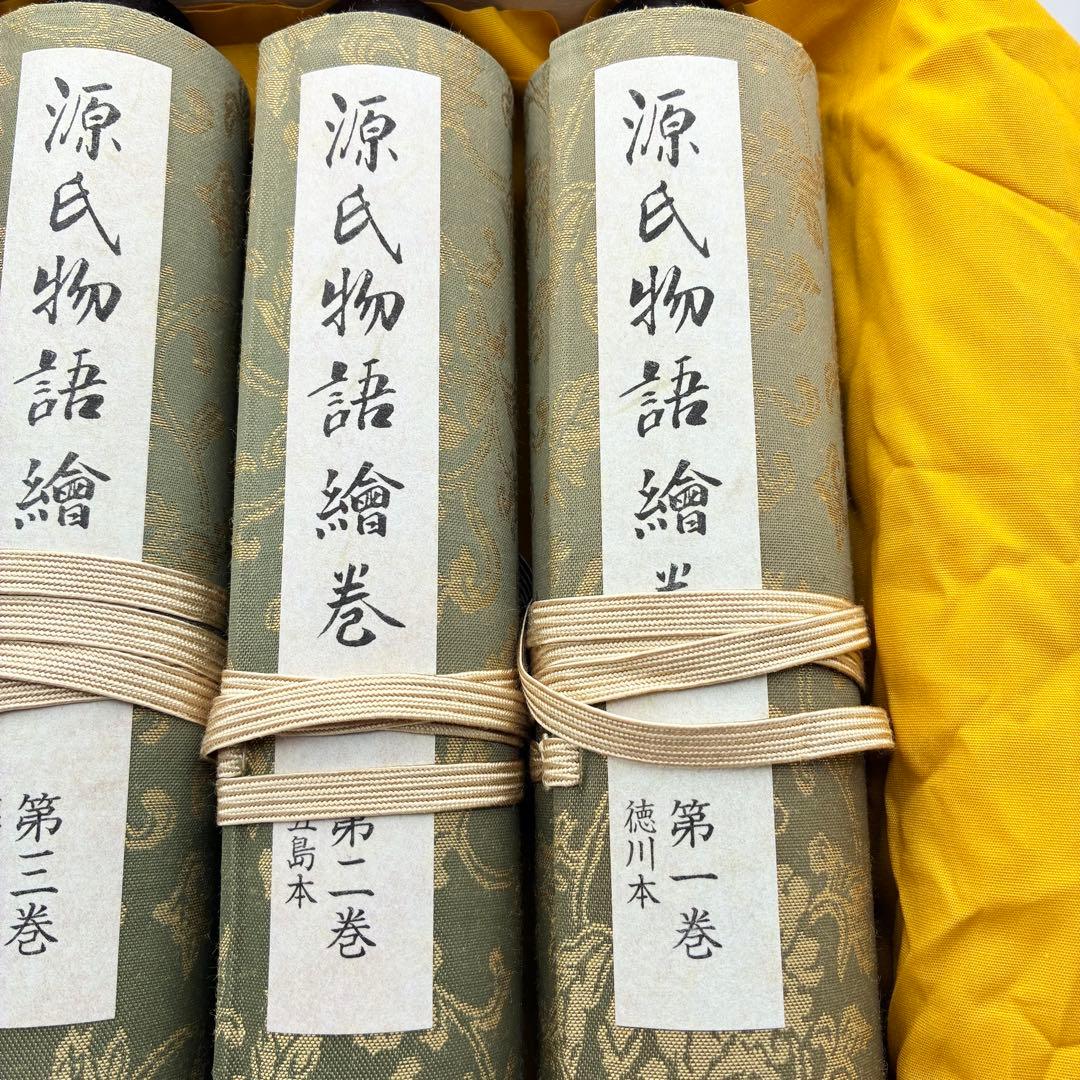 源氏物語繪巻
第一巻
徳川本
源氏物語繪巻
第二巻
五島本
源氏物語繪
第三巻